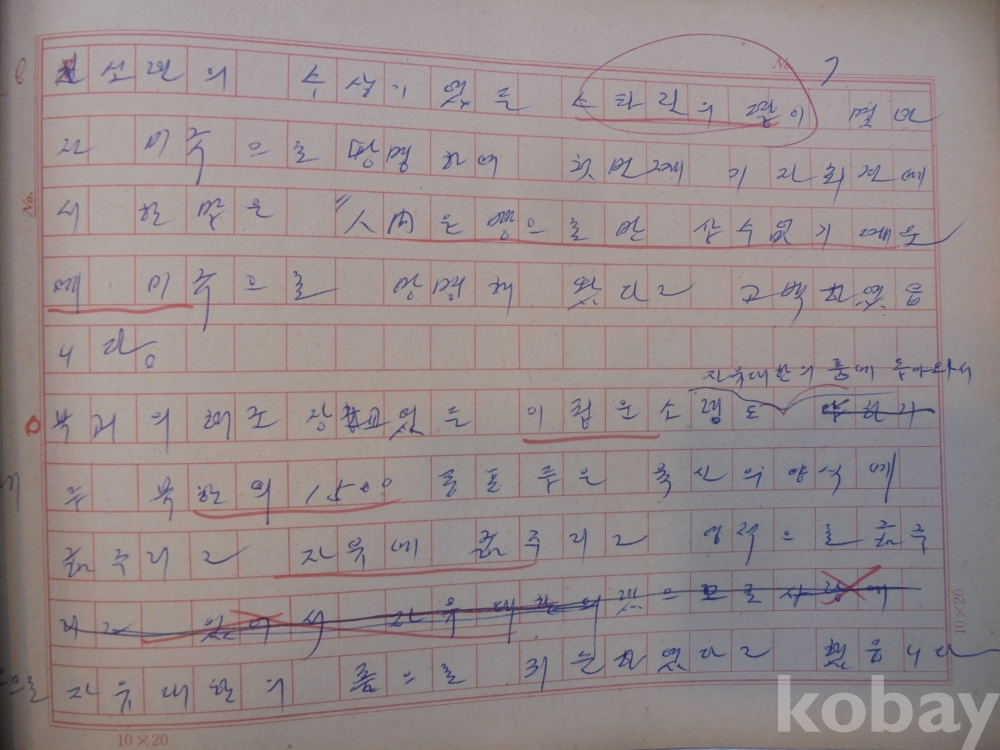 소련의 수상이 었든 스타린의 딸이 몇 번
미국으로 망명하여 첫번째 기자회견에
서 한 말은 "人間은 빵으로만 살수없기 때문
에 미국으로 망명해 왔다고 고백하였읍
니다.
자유대한의 품에 돌아와서
북괴의 해군 장교였든 이 소령도
북한의 1500 굶주린 육신의 양식에
굶주리고 자유에 굶주리고 영적으로 굶주
리고 있어서 자유대한의
자유대한의 품으로 귀순하였다고 했읍니다
No.
10×20
10×20
kobay